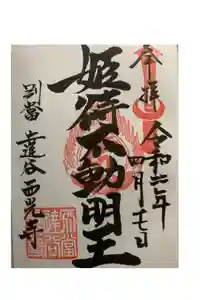 奉拝
令和六年
四月十七日
姫待不動明王
別當 達谷西光寺